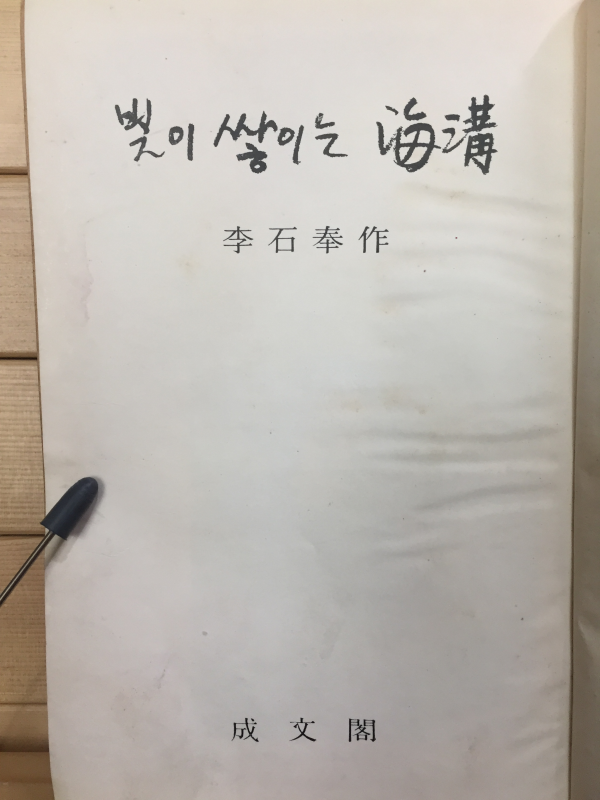 빛이 쌓이는 海溝
李石奉作
成文閣